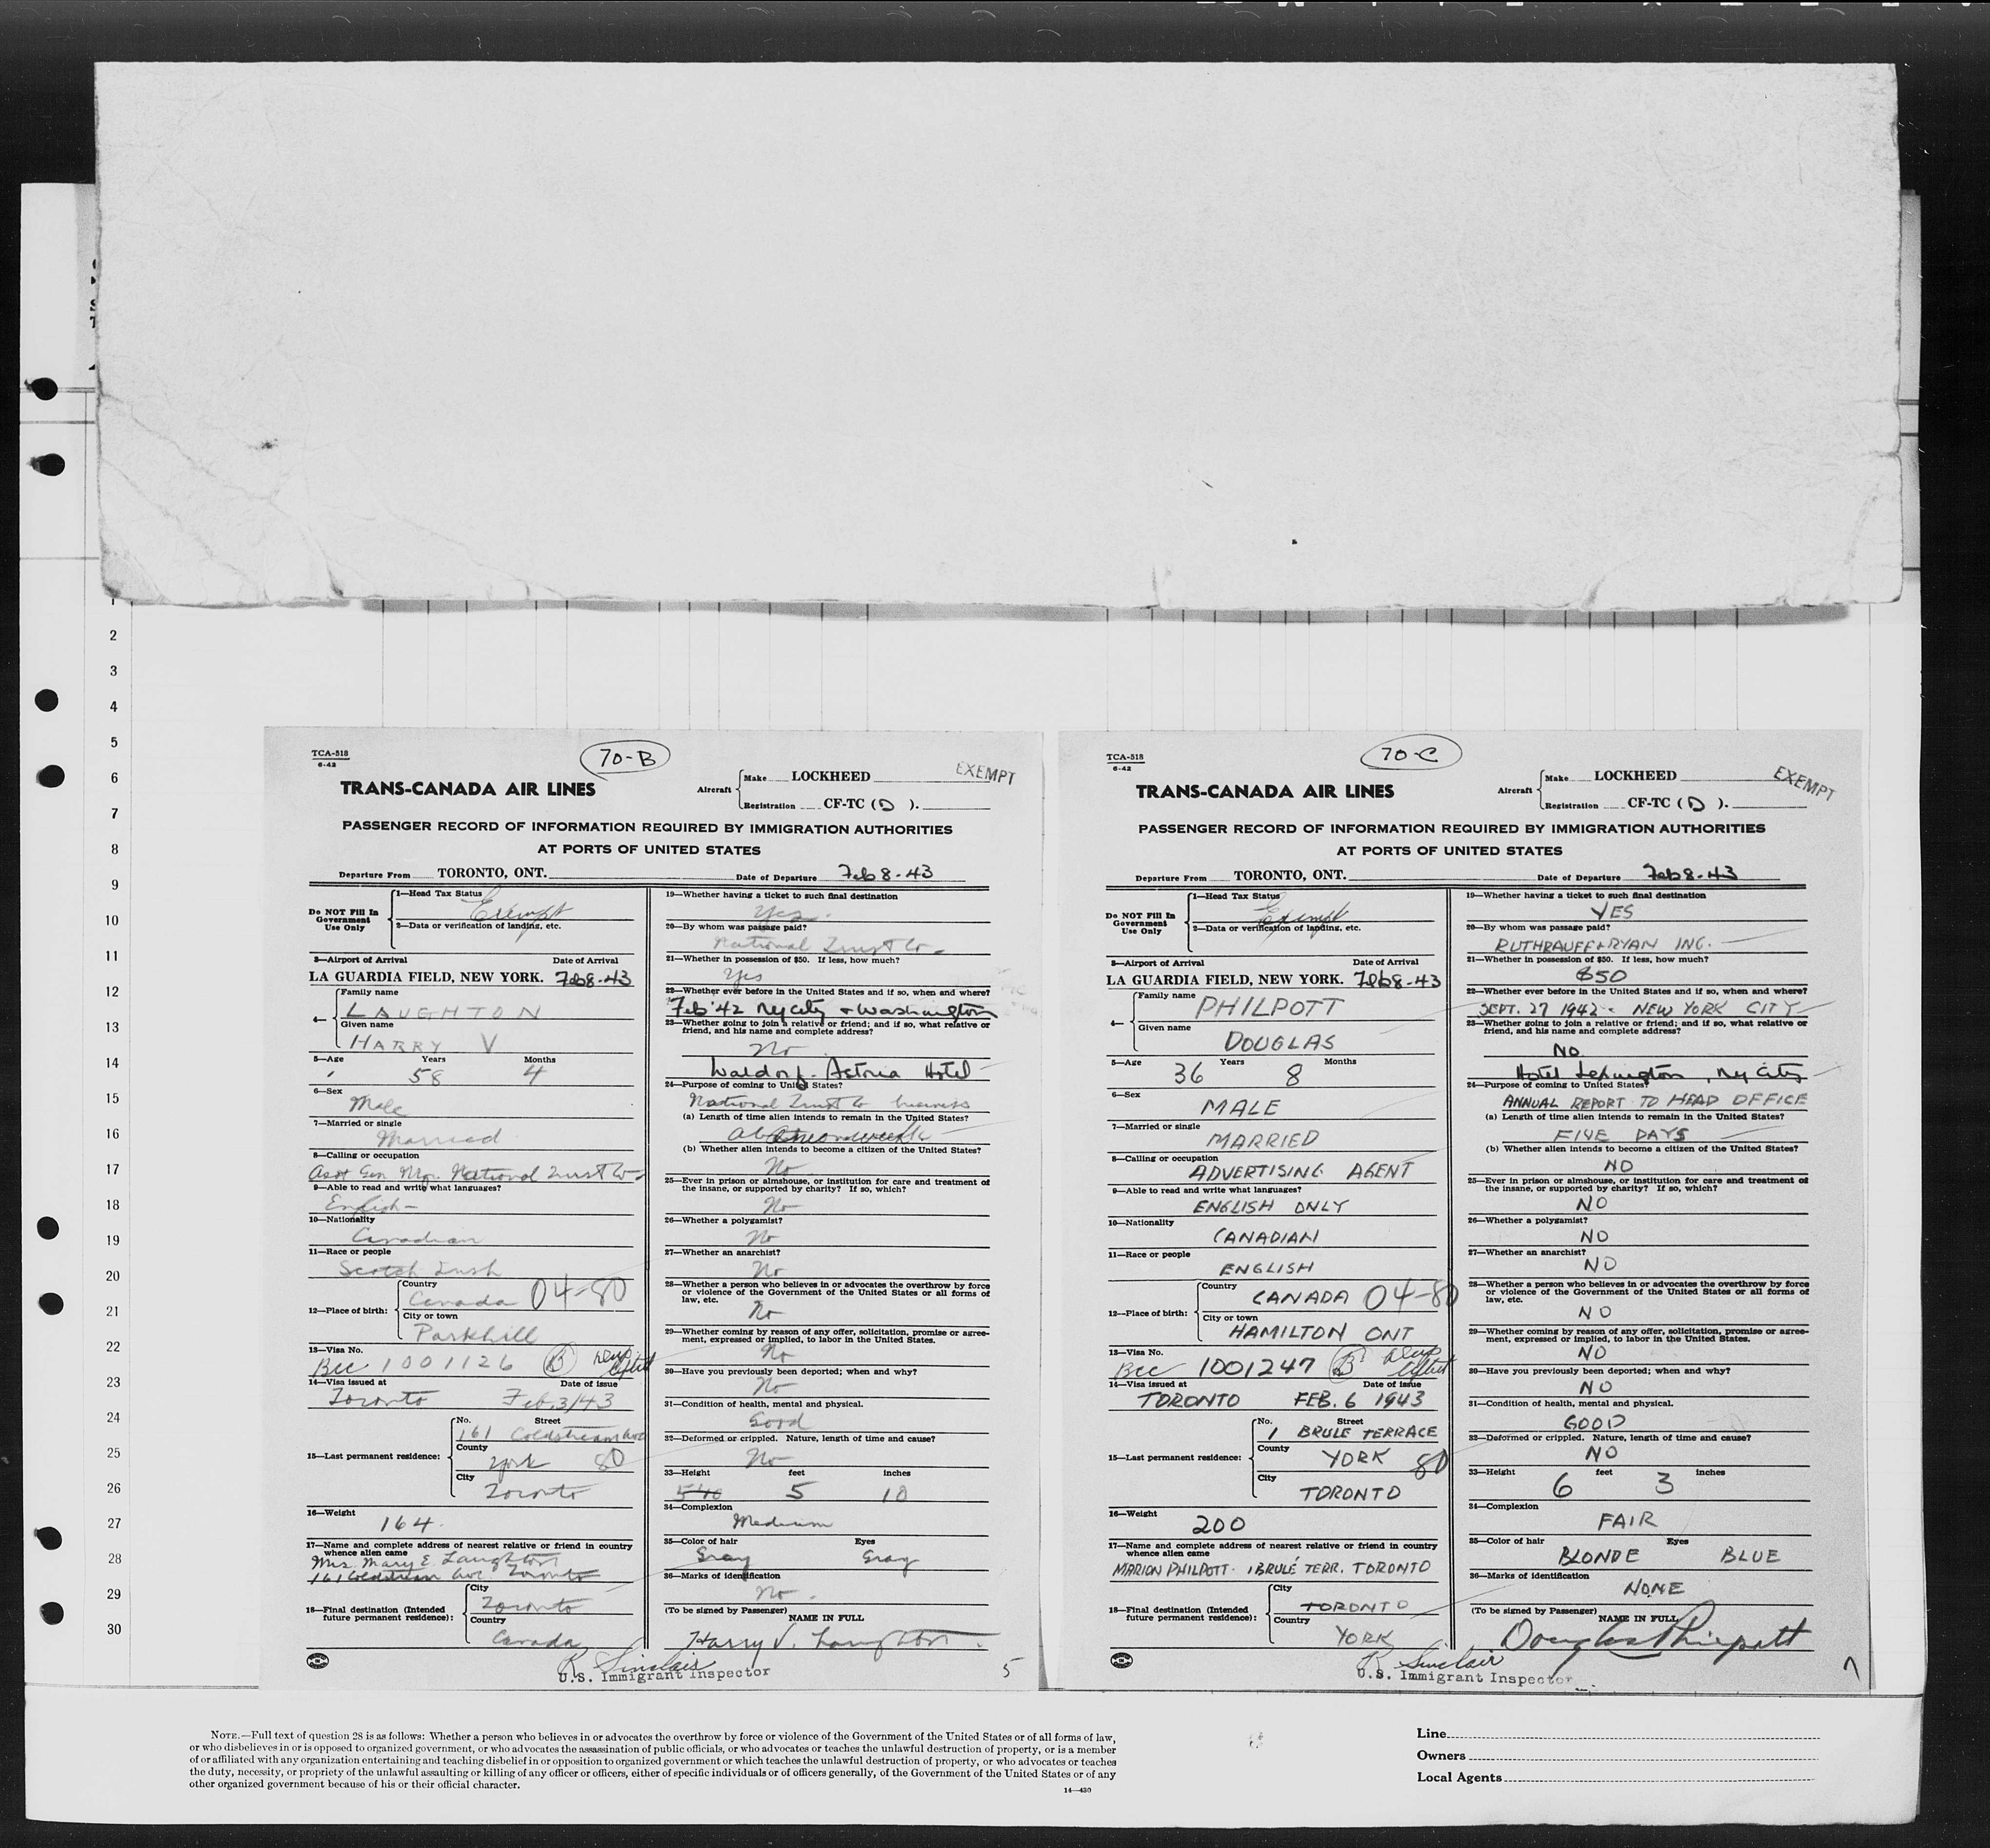 1
2
3
4
5
6
7
8
9
10
11
12
13
14
15
16
17
18
19
20
21
22
23
24
25
26
27
28
29
30
TCA-518
6-42
70-B
TRANS-CANADA AIR LINES
Aircraft
Make LOCKHEED
Registration CF-TC ( D ).
EXEMPT
PASSENGER RECORD OF INFORMATION REQUIRED BY IMMIGRATION AUTHORITIES
AT PORTS OF UNITED STATES
Departure From TORONTO, ONT. Date of Departure Feb 8-43
Do NOT Fill In Government Use Only
1—Head Tax Status
Exempt
2—Data or verification of landing, etc.
3—Airport of Arrival Date of Arrival
LA GUARDIA FIELD, NEW YORK. Feb 8-43
4—
Family name
LAUGHTON
Given name
HARRY V
5—Age Years Months
58 4
6—Sex
Male
7—Married or single
Married
8—Calling or occupation
Asst Gen Mgr. National Trust Co
9—Able to read and write what languages?
English
10—Nationality
Canadian
11—Race or people
Scotch Irish
12—Place of birth:
Country
Canada 04-80
City or town
Parkhill
13—Visa No.
BCC 1001126 B
14—Visa issued at Date of issue
Toronto Feb. 3/43
15—Last permanent residence:
No. Street
161 Coldstream Ave
County
York 80
City
Toronto
16—Weight
164
17—Name and complete address of nearest relative or friend in country
whence alien came
Mrs. Mary E. Laughton
161 Coldstream Ave. Toronto
18—Final destination (Intended
future permanent residence):
City
Toronto
Country
Canada
19—Whether having a ticket to such final destination
Yes.
20—By whom was passage paid?
National Trust Co.
21—Whether in possession of $50. If less, how much?
Yes
22—Whether ever before in the United States and if so, when and where?
Feb '42 Ny City + Washington
23—Whether going to join a relative or friend; and if so, what relative or
friend, and his name and complete address?
No
Waldorf-Astoria Hotel
24—Purpose of coming to United States?
National Trust Co business
(a) Length of time alien intends to remain in the United States?
(b) Whether alien intends to become a citizen of the United States?
No
25—Ever in prison or almshouse, or institution for care and treatment of
the insane, or supported by charity? If so, which?
No
26—Whether a polygamist?
No
27—Whether an anarchist?
No
28—Whether a person who believes in or advocates the overthrow by force
or violence of the Government of the United States or all forms of
law, etc.
No
29—Whether coming by reason of any offer, solicitation, promise or agree-
ment, expressed or implied, to labor in the United States.
No
30—Have you previously been deported; when and why?
No
31—Condition of health, mental and physical.
Good
32—Deformed or crippled. Nature, length of time and cause?
No
33—Height feet inches
5 10
34—Complexion
Medium
35—Color of hair Eyes
Gray Gray
36—Marks of identification
No.
(To be signed by Passenger) NAME IN FULL
Harry V. Laughton
R Sinclair
U.S. Immigrant Inspector
5
TCA-518
6-42
70-C
TRANS-CANADA AIR LINES
Aircraft
Make LOCKHEED
Registration CF-TC ( D ).
EXEMPT
PASSENGER RECORD OF INFORMATION REQUIRED BY IMMIGRATION AUTHORITIES
AT PORTS OF UNITED STATES
Departure From TORONTO, ONT. Date of Departure Feb 8-43
Do NOT Fill In Government Use Only
1—Head Tax Status
Exempt
2—Data or verification of landing, etc.
3—Airport of Arrival Date of Arrival
LA GUARDIA FIELD, NEW YORK. Feb 8-43
4—
Family name
PHILPOTT
Given name
DOUGLAS
5—Age Years Months
36 8
6—Sex
MALE
7—Married or single
MARRIED
8—Calling or occupation
ADVERTISING AGENT
9—Able to read and write what languages?
ENGLISH ONLY
10—Nationality
CANADIAN
11—Race or people
ENGLISH
12—Place of birth:
Country
CANADA 04-80
City or town
HAMILTON ONT
13—Visa No.
BCC 1001247 B
14—Visa issued at Date of issue
TORONTO FEB. 6 1943
15—Last permanent residence:
No. Street
1 BRULE TERRACE
County
YORK 80
City
TORONTO
16—Weight
200
17—Name and complete address of nearest relative or friend in country
whence alien came
MARION PHILPOTT. 1 BRULÉ TERR. TORONTO
18—Final destination (Intended
future permanent residence):
City
TORONTO
Country
YORK
19—Whether having a ticket to such final destination
YES
20—By whom was passage paid?
RUTHRAUFF & RYAN INC.
21—Whether in possession of $50. If less, how much?
$50
22—Whether ever before in the United States and if so, when and where?
SEPT. 27 1942 - NEW YORK CITY
23—Whether going to join a relative or friend; and if so, what relative or
friend, and his name and complete address?
NO
Hotel Lexington, Ny City
24—Purpose of coming to United States?
ANNUAL REPORT TO HEAD OFFICE
(a) Length of time alien intends to remain in the United States?
FIVE DAYS
(b) Whether alien intends to become a citizen of the United States?
NO
25—Ever in prison or almshouse, or institution for care and treatment of
the insane, or supported by charity? If so, which?
NO
26—Whether a polygamist?
NO
27—Whether an anarchist?
NO
28—Whether a person who believes in or advocates the overthrow by force
or violence of the Government of the United States or all forms of
law, etc.
NO
29—Whether coming by reason of any offer, solicitation, promise or agree-
ment, expressed or implied, to labor in the United States.
NO
30—Have you previously been deported; when and why?
NO
31—Condition of health, mental and physical.
GOOD
32—Deformed or crippled. Nature, length of time and cause?
NO
33—Height feet inches
6 3
34—Complexion
FAIR
35—Color of hair Eyes
BLONDE BLUE
36—Marks of identification
NONE
(To be signed by Passenger) NAME IN FULL
Douglas Philpott
R Sinclair
U.S. Immigrant Inspector
7
NOTE.—Full text of question 28 is as follows: Whether a person who believes in or advocates the overthrow by force or violence of the Government of the United States or of all forms of law,
or who disbelieves in or is opposed to organized government, or who advocates the assassination of public officials, or who advocates or teaches the unlawful destruction of property, or is a member
of or affiliated with any organization entertaining and teaching disbelief in or opposition to organized government or which teaches the unlawful destruction of property, or who advocates or teaches
the duty, necessity, or propriety of the unlawful assaulting or killing of any officer or officers, either of specific individuals or of officers generally, of the Government of the United States or of any
other organized government because of his or their official character.
14—430
Line
Owners
Local Agents